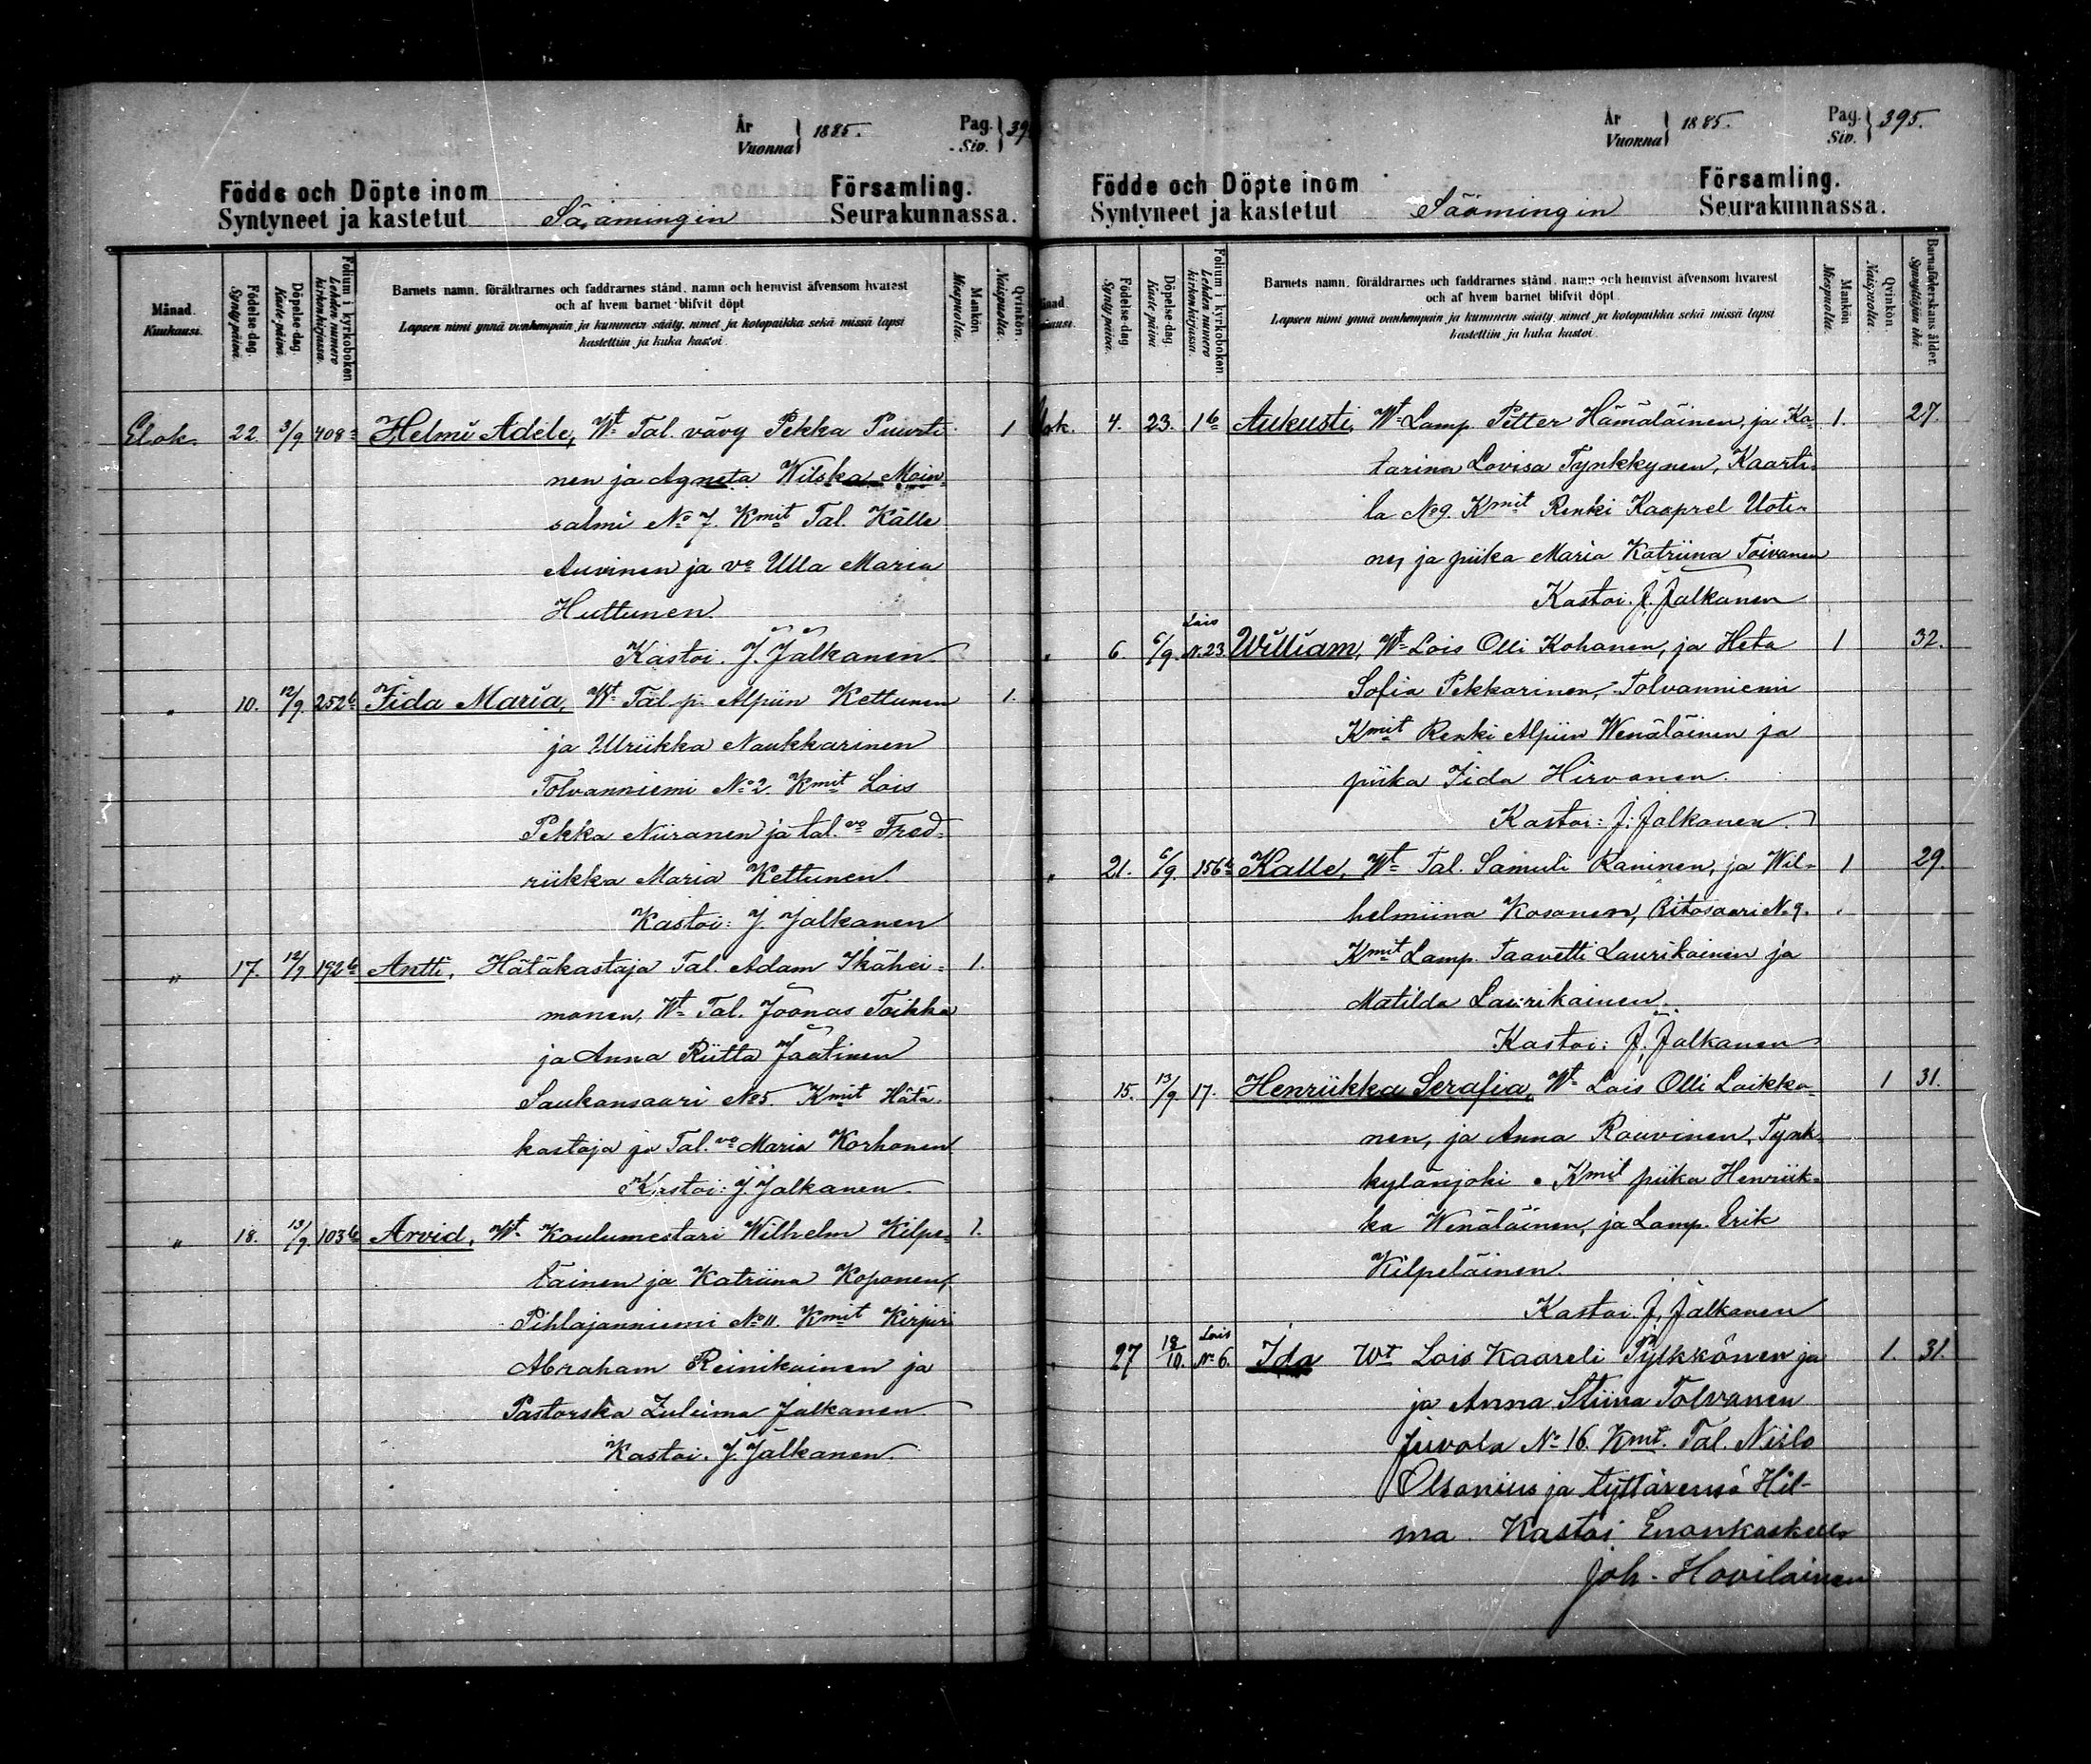 År
Vuonna } 1885.
Pag.
Siv. } 39
Födde och Döpte inom
Syntyneet ja kastetut Säämingin
Församling.
Seurakunnassa.
Månad.
Kuukausi.
Födelse-dag.
Synty päivä.
Döpelse-dag.
Kaste-päivä.
Folium i kyrkoboken
Lehden numero
kirkonkirjassa.
Barnets namn, föräldrarnes och faddrarnes stånd, namn och hemvist äfvensom hvarest
och af hvem barnet blifvit döpt
Lapsen nimi ynnä vanhempain ja kummein sääty, nimet ja kotopaikka sekä missä lapsi
kastettiin ja kuka kastoi.
Mankön.
Miespuolia.
Qvinkön.
Naispuolia.
Elok. 22. 3/9 408 Helmi Adéle, Wt Tal. vävy Pekka Puurti- 1
nen ja Agneta Wilska Moin-
salmi No 7. Kmit Tal. Kalle
Auvinen ja vo Ulla Maria
Huttunen.
Kastoi. J. Jalkanen.
" 10. 12/9. 252b Iida Maria, Wt Tal. p. Alpiin Kettunen 1.
ja Ulriikka Naukkarinen
Tolvanniemi No 2. Kmit Lois
Pekka Niiranen ja tal. vo Fred-
riikka Maria Kettunen.
Kastoi: J. Jalkanen
" 17. 12/9 192b Antti, Hätäkastaja Tal. Adam Ikähei- 1.
monen, Wt Tal. Joonas Toikka
ja Anna Riitta Jaatinen
Saukonsaari No 5. Kmit Hätä-
kastaja ja Tal. vo Maria Korhonen
Kastoi: J. Jalkanen.
" 18. 13/9. 103b Arvid, Wt Koulumestari Wilhelm Kilpe- 1.
läinen ja Katriina Koponen,
Pihlajanniemi No 11. Kmit Kirjuri
Abraham Reinikainen ja
Pastorska Zuleima Jalkanen
Kastoi. J. Jalkanen.
År
Vuonna } 1885.
Pag.
Siv. } 395.
Födde och Döpte inom
Syntyneet ja kastetut Säämingin
Församling.
Seurakunnassa.
Födelse-dag.
Synty päivä.
Döpelse-dag.
Kaste-päivä
Folium i kyrkoboken.
Lehden numero
kirkonkirjassa.
Barnets namn, föräldrarnes och faddrarnes stånd, namn och hemvist äfvensom hvarest
och af hvem barnet blifvit döpt.
Lapsen nimi ynnä vanhempain ja kummein sääty, nimet ja kotopaikka sekä missä lapsi
kastettiin ja kuka kastoi.
Mankön
Miespuolia.
Qvinkön.
Naispuolia.
Barnaföderskans ålder.
Synnyttäjän ikä.
Elok. 4. 23. 16 Aukusti, Wt Lamp. Petter Hämäläinen, ja Ka- 1. 27.
tarina Lovisa Tynkkynen, Kaarti-
la No 9. Kmit Renki Kaaprel Uoti-
nen, ja piika Maria Katriina Toivanen
Kastoi. J. Jalkanen
" 6. 6/9. Lois No 23 William, Wt Lois Olli Kohanen, ja Heta 1 32.
Sofia Pekkarinen, Tolvanniemi
Kmit Renki Alpiin Wenäläinen ja
piika Iida Hirvonen.
Kastoi: J. Jalkanen.
" 21. 6/9. 156b Kalle, Wt Tal. Samuli Raninen, ja Wil- 1 29.
helmiina Kosonen, Ritosaari No 9.
Kmit Lamp. Taavetti Laurikainen ja
Matilda Laurikainen.
Kastoi: J. Jalkanen
15. 13/9 17. Henriikka Serafia, Wt Lois Olli Laikka- 1 31.
nen, ja Anna Rouvinen, Tynk-
kylänjoki. Kmit piika Henriik-
ka Wenäläinen, ja Lamp. Erik
Kilpeläinen.
Kastoi. J. Jalkanen
27 18/10. Lois No 6. Ida Wt Lois Kaareli Pylkkönen ja 1. 31.
ja Anna Stiina Tolvanen
Juvola No 16. Kmit. Tal. Niilo
Olsonius ja tyttärensä Hil-
ma. Kastoi Enonkoskella
Joh. Hovilainen